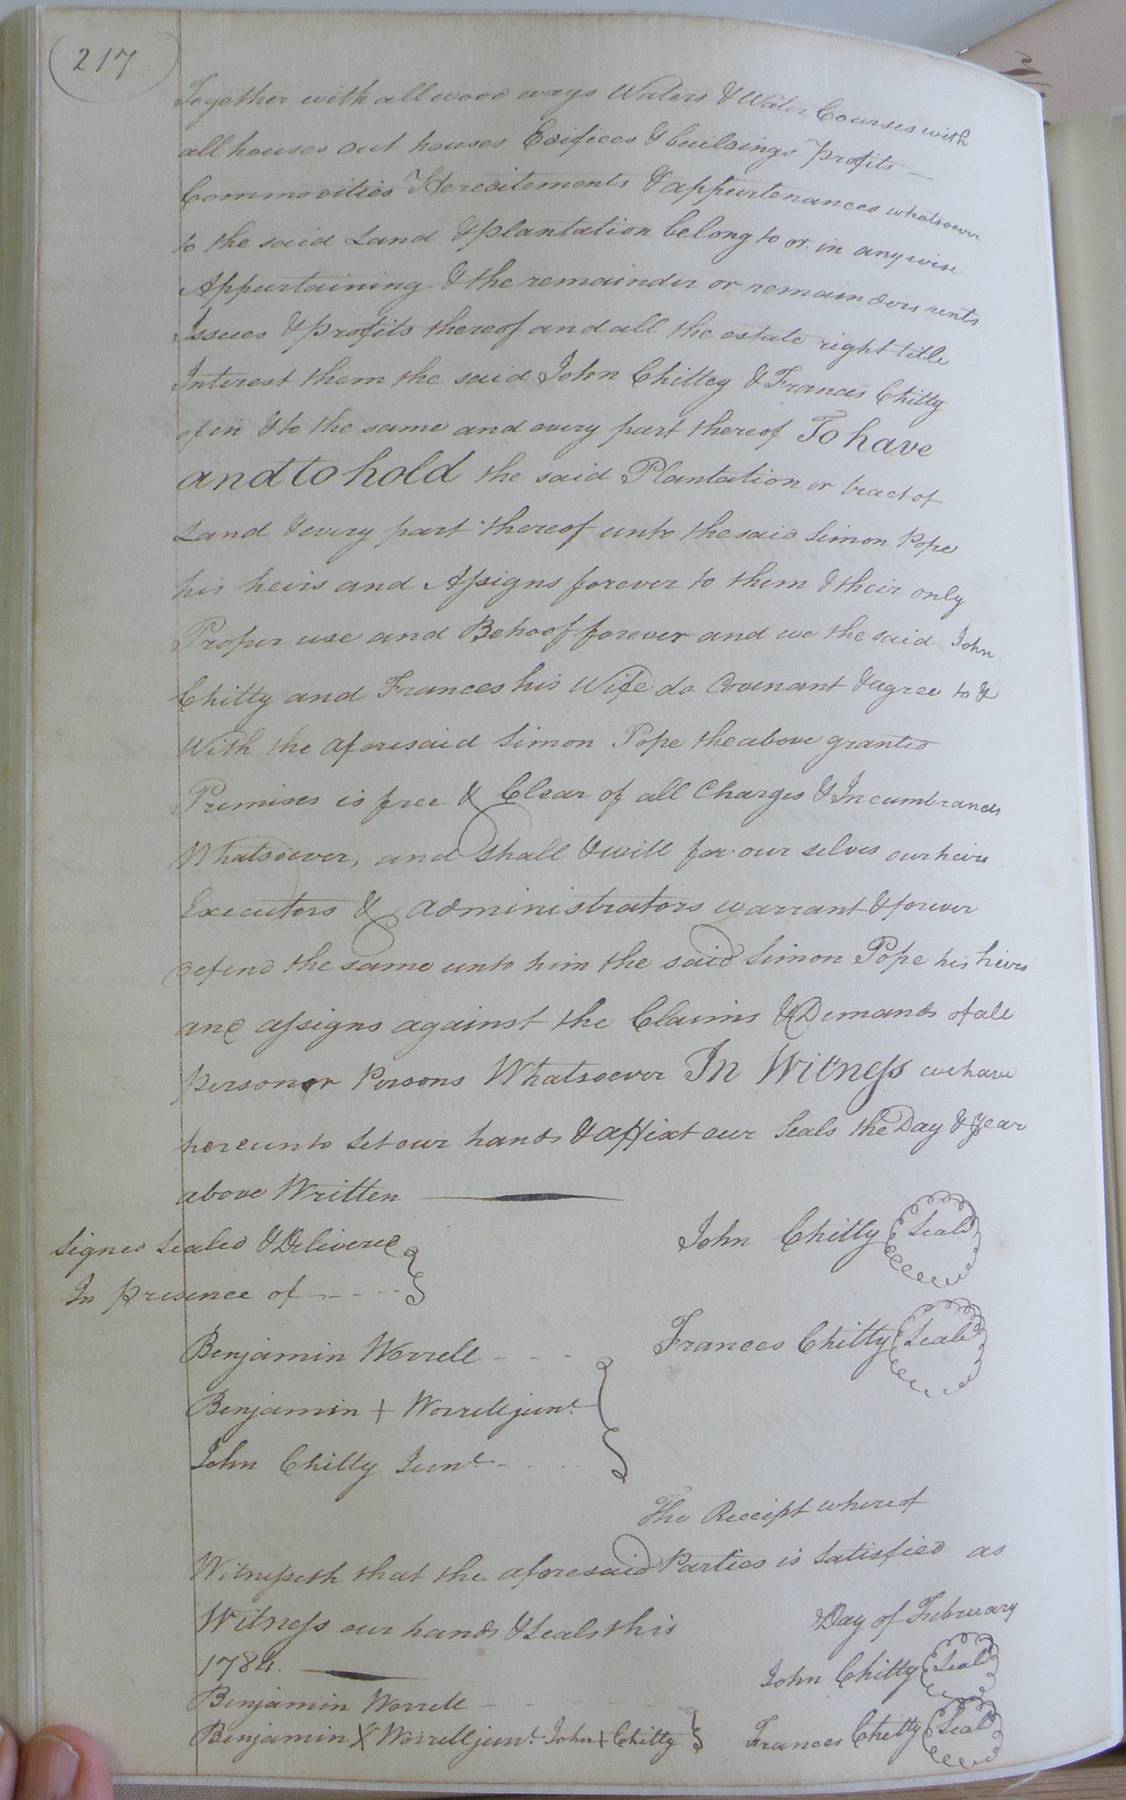 217
Together with all wood ways Waters & Water Courses with
all houses out houses Edifices & buildings Profits
Commodities Hereditements & appurtenances whatsoever
to the said Land & plantation belong to or in any wise
Appurtaining & the remainder or remainders rents
Issues & profits thereof and all the estate right title
Interest them the said John Chittey & Frances Chitty
of in & to the same and every part thereof To have
and to hold the said Plantation or tract of
Land & every part thereof unto the said Simon Pope
his heirs and Assigns forever to them & their only
Proper use and Behoof forever and we the said John
Chitty and Frances his Wife do Covenant & agree to &
With the aforesaid Simon Pope the above granted
Premises is free & Clear of all Charges & Incumbrances
Whatsoever, and shall & will for our selves our heirs
Executors & administrators warrant & forever
defend the same unto him the said Simon Pope his heirs
and assigns against the Claims & Demands of all
person or Persons Whatsoever In Witness we have
hereunto Set our hands & affixt our Seals the Day & year
above Written
Signed Sealed & Delivered John Chitty Seal
In presence of
Benjamin Worrell Frances Chitty Seal
Benjamin + Worrell junr
John Chitty Junr
The Receipt whereof
Witnesseth that the aforesaid Parties is Satisfied as
Witness our hands & seals this Day of February
1784. John Chitty Seal
Benjamin Worrell
Benjamin X Worrell junr John + Chitty Frances Chitty Seal